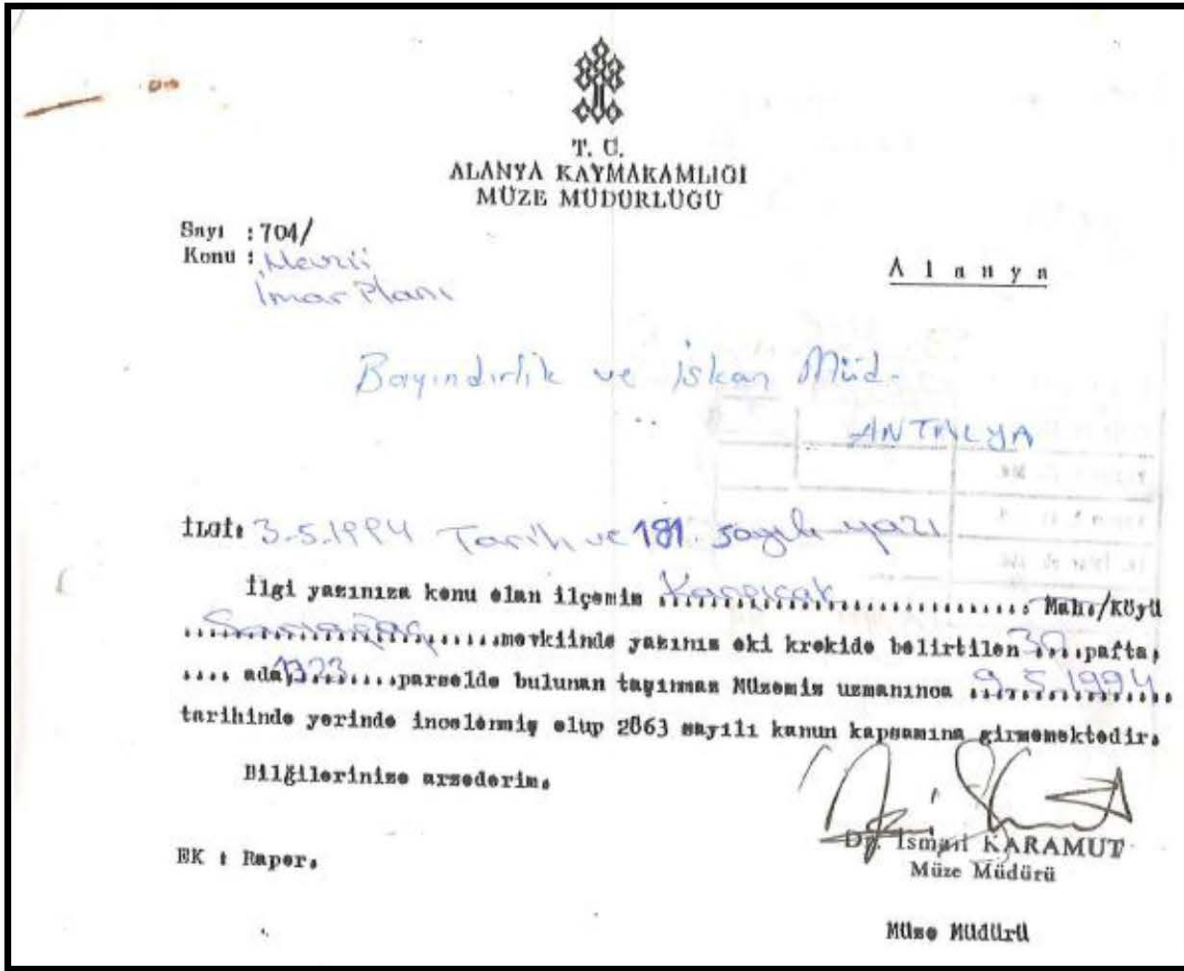 T. C.
ALANYA KAYMAKAMLIĞI
MÜZE MÜDÜRLÜĞÜ
Sayı : 704/
Konu : Mevzii
İmar Planı
A l a n y a
Bayındırlık ve İskan Müd.
ANTALYA
İLGİ: 3.5.1994 Tarih ve 181 sayılı yazı
İlgi yazınıza konu olan ilçemiz Kargıcak Mah./Köyü
mevkiinde yazınız eki krokide belirtilen 30 pafta,
.... ada, 1323 parselde bulunan taşınmaz Müzemiz uzmanınca 9.5.1994
tarihinde yerinde incelenmiş olup 2863 sayılı kanun kapsamına girmemektedir.
Bilğilerinize arzederim.
Dr. İsmail KARAMUT
EK : Rapor.
Müze Müdürü
Müze Müdürü